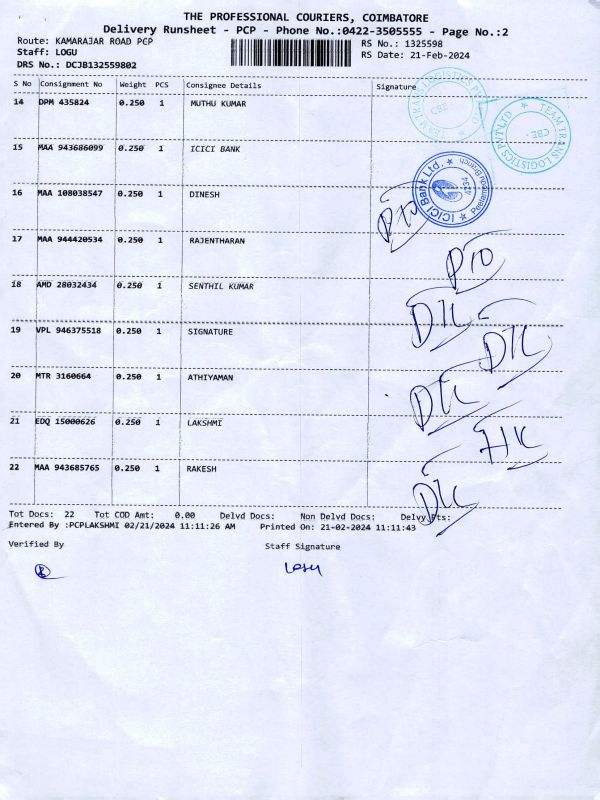 THE PROFESSIONAL COURIERS, COIMBATORE
Delivery Runsheet - PCP - Phone No.:0422-3505555 - Page No.:2
Route: KAMARAJAR ROAD PCP RS No.: 1325598
Staff: LOGU RS Date: 21-Feb-2024
DRS No.: DCJB132559802
S No Consignment No Weight PCS Consignee Details Signature
14 DPM 435824 0.250 1 MUTHU KUMAR
TEAM TRANS LOGISTICS PVT LTD
TEAM TRANS LOGISTICS PVT LTD CBE.
15 MAA 943686099 0.250 1 ICICI BANK
ICICI Bank Ltd.
16 MAA 108038547 0.250 1 DINESH
17 MAA 944420534 0.250 1 RAJENTHARAN
18 AMD 28032434 0.250 1 SENTHIL KUMAR
19 VPL 946375518 0.250 1 SIGNATURE
20 MTR 3160664 0.250 1 ATHIYAMAN
21 EDQ 15000626 0.250 1 LAKSHMI
22 MAA 943685765 0.250 1 RAKESH
Tot Docs: 22 Tot COD Amt: 0.00 Delvd Docs: Non Delvd Docs: Delvy Pts:
Entered By :PCPLAKSHMI 02/21/2024 11:11:26 AM Printed On: 21-02-2024 11:11:43
Verified By Staff Signature